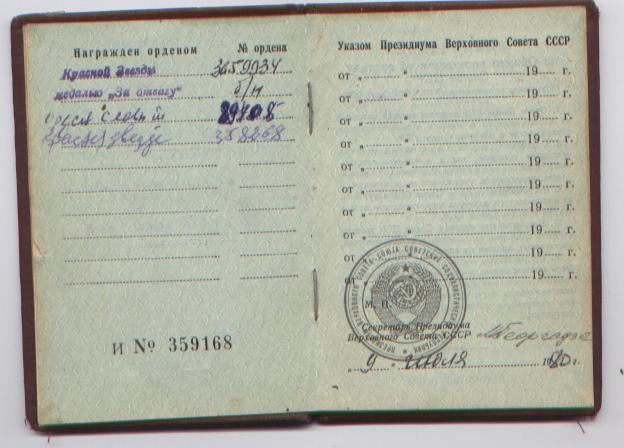 Награжден орденом № ордена
Красной Звезды 3659934
медалью „За отвагу" б/н
29408
358268
И № 359168
Указом Президиума Верховного Совета СССР
от „ “ 19 г.
от „ “ 19 г.
от „ “ 19 г.
от „ “ 19 г.
от „ “ 19 г.
от „ “ 19 г.
от „ “ 19 г.
от „ “ 19 г.
от „ “ 19 г.
от „ “ 19 г.
М. П.
Секретарь Президиума
Верховного Совета СССР
„ 9 “ июля 1980 г.